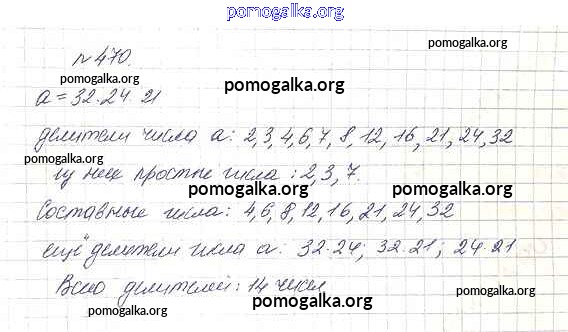 pomogalka.org
№ 470.
pomogalka.org
pomogalka.org
pomogalka.org
a = 32·24·21
pomogalka.org
делители числа a: 2,3,4,6,7,8,12,16,21,24,32
pomogalka.org
из них простые числа: 2,3,7.
pomogalka.org
pomogalka.org
Составные числа: 4,6,8,12,16,21,24,32
ещё делители числа a: 32·24; 32·21; 24·21
pomogalka.org
pomogalka.org
Всего делителей: 14 чисел
pomogalka.org
pomogalka.org